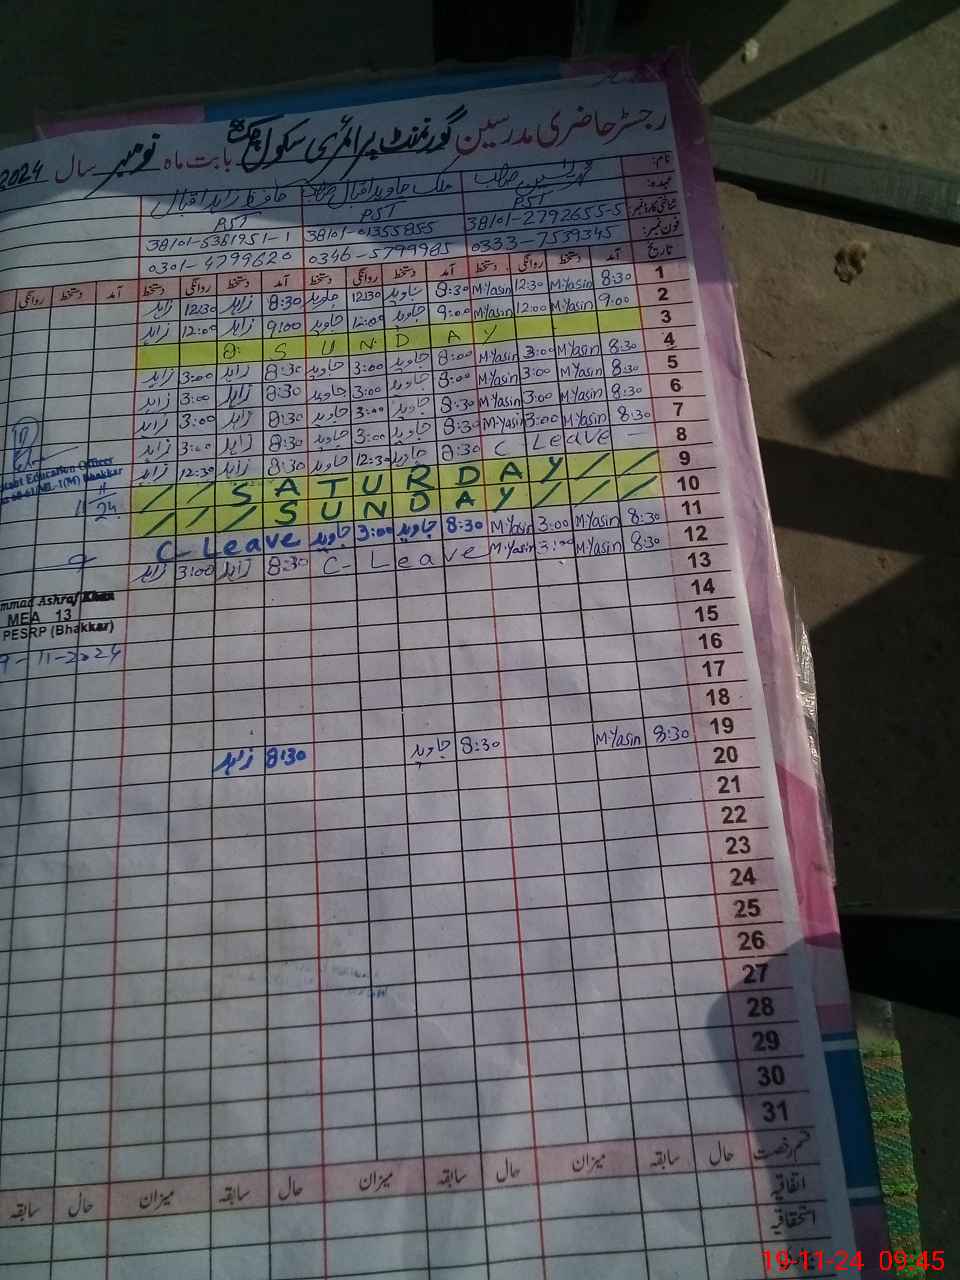 رجسٹر حاضری مدرسین گورنمنٹ پرائمری سکول بابت ماہ نومبر سال 2024
نام: محمد یٰسین صاحب ملک جاوید اقبال صاحب حافظ زاہد اقبال
عہدہ: PST PST PST
شناختی کارڈ نمبر: 38101-2792655-5 38101-01355855 38101-5361951-1
فون نمبر: 0333-7539345 0346-5799985 0301-4799620
تاریخ آمد دستخط روانگی دستخط آمد دستخط روانگی دستخط آمد دستخط روانگی دستخط آمد دستخط روانگی
1 8:30 M.Yasin 12:30 M.Yasin 8:30 جاوید 12:30 جاوید 8:30 زاہد 12:30 زاہد
2 9:00 M.Yasin 12:00 M.Yasin 9:00 جاوید 12:00 جاوید 9:00 زاہد 12:00 زاہد
3 S U N D A Y
4 8:30 M.Yasin 3:00 M.Yasin 8:00 جاوید 3:00 جاوید 8:30 زاہد 3:00 زاہد
5 8:30 M.Yasin 3:00 M.Yasin 8:00 جاوید 3:00 جاوید 8:30 زاہد 3:00 زاہد
6 8:30 M.Yasin 3:00 M.Yasin 8:30 جاوید 3:00 جاوید 8:30 زاہد 3:00 زاہد
7 8:30 M.Yasin 3:00 M.Yasin 8:30 جاوید 3:00 جاوید 8:30 زاہد 3:00 زاہد
8 C Leave - 8:30 جاوید 12:30 جاوید 8:30 زاہد 12:30 زاہد
9 S A T U R D A Y
10 S U N D A Y
11 8:30 M.Yasin 3:00 M.Yasin 8:30 جاوید 3:00 جاوید C-Leave
12 8:30 M.Yasin 3:00 M.Yasin C-Leave 8:30 زاہد 3:00 زاہد
13
14
15
16
17
18
19 8:30 M.Yasin 8:30 جاوید 8:30 زاہد
20
21
22
23
24
25
26
27
28
29
30
31
Education Officer
Bhakkar
11
24
mmad Ashraf Khan
MEA 13
PESRP (Bhakkar)
9-11-2024
قسم رخصت حال سابقہ میزان حال سابقہ میزان حال سابقہ میزان حال سابقہ
اتفاقیہ
استحقاقیہ
19-11-24 09:45